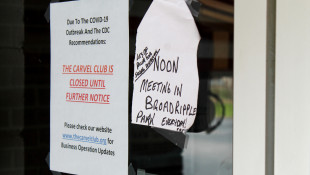 Due To The COVID-19
Outbreak And The CDC
Recommendations:
THE CARVEL CLUB IS
CLOSED UNTIL
FURTHER NOTICE
Please check our website
www.thecarvelclub.org for
Business Operation Updates
NOON
MEETING IN
BROADRIPPLE
PARK EVERYDAY!